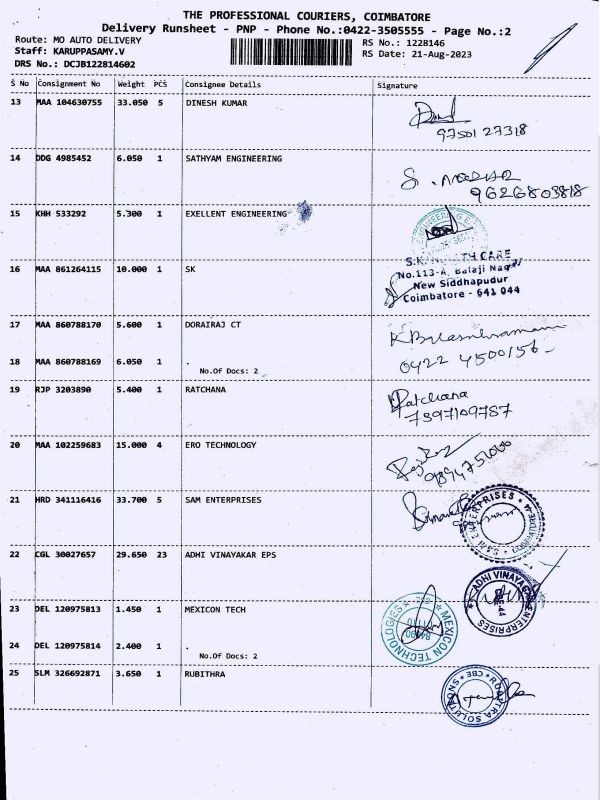 THE PROFESSIONAL COURIERS, COIMBATORE
Delivery Runsheet - PNP - Phone No.:0422-3505555 - Page No.:2
Route: MO AUTO DELIVERY
Staff: KARUPPASAMY.V
DRS No.: DCJB122814602
RS No.: 1228146
RS Date: 21-Aug-2023
S No Consignment No Weight PCS Consignee Details Signature
13 MAA 104630755 33.050 5 DINESH KUMAR
9750127318
14 DDG 4985452 6.050 1 SATHYAM ENGINEERING
9626803818
15 KHH 533292 5.300 1 EXELLENT ENGINEERING
16 MAA 861264115 10.000 1 SK
No.113-A, Balaji Nagar
New Siddhapudur
Coimbatore - 641 044
17 MAA 860788170 5.600 1 DORAIRAJ CT
K Balasubramani
0422 4500156
18 MAA 860788169 6.050 1 .
No.Of Docs: 2
19 RJP 3203890 5.400 1 RATCHANA
Ratchana
7397109787
20 MAA 102259683 15.000 4 ERO TECHNOLOGY
21 HRD 341116416 33.700 5 SAM ENTERPRISES
SAM ENTERPRISES
22 CGL 30027657 29.650 23 ADHI VINAYAKAR EPS
ADHI VINAYAGA ENTERPRISES
23 DEL 120975813 1.450 1 MEXICON TECH
MEXICON TECHNOLOGIES
24 DEL 120975814 2.400 1 .
No.Of Docs: 2
25 SLM 326692871 3.650 1 RUBITHRA
SOLUTIONS CBE